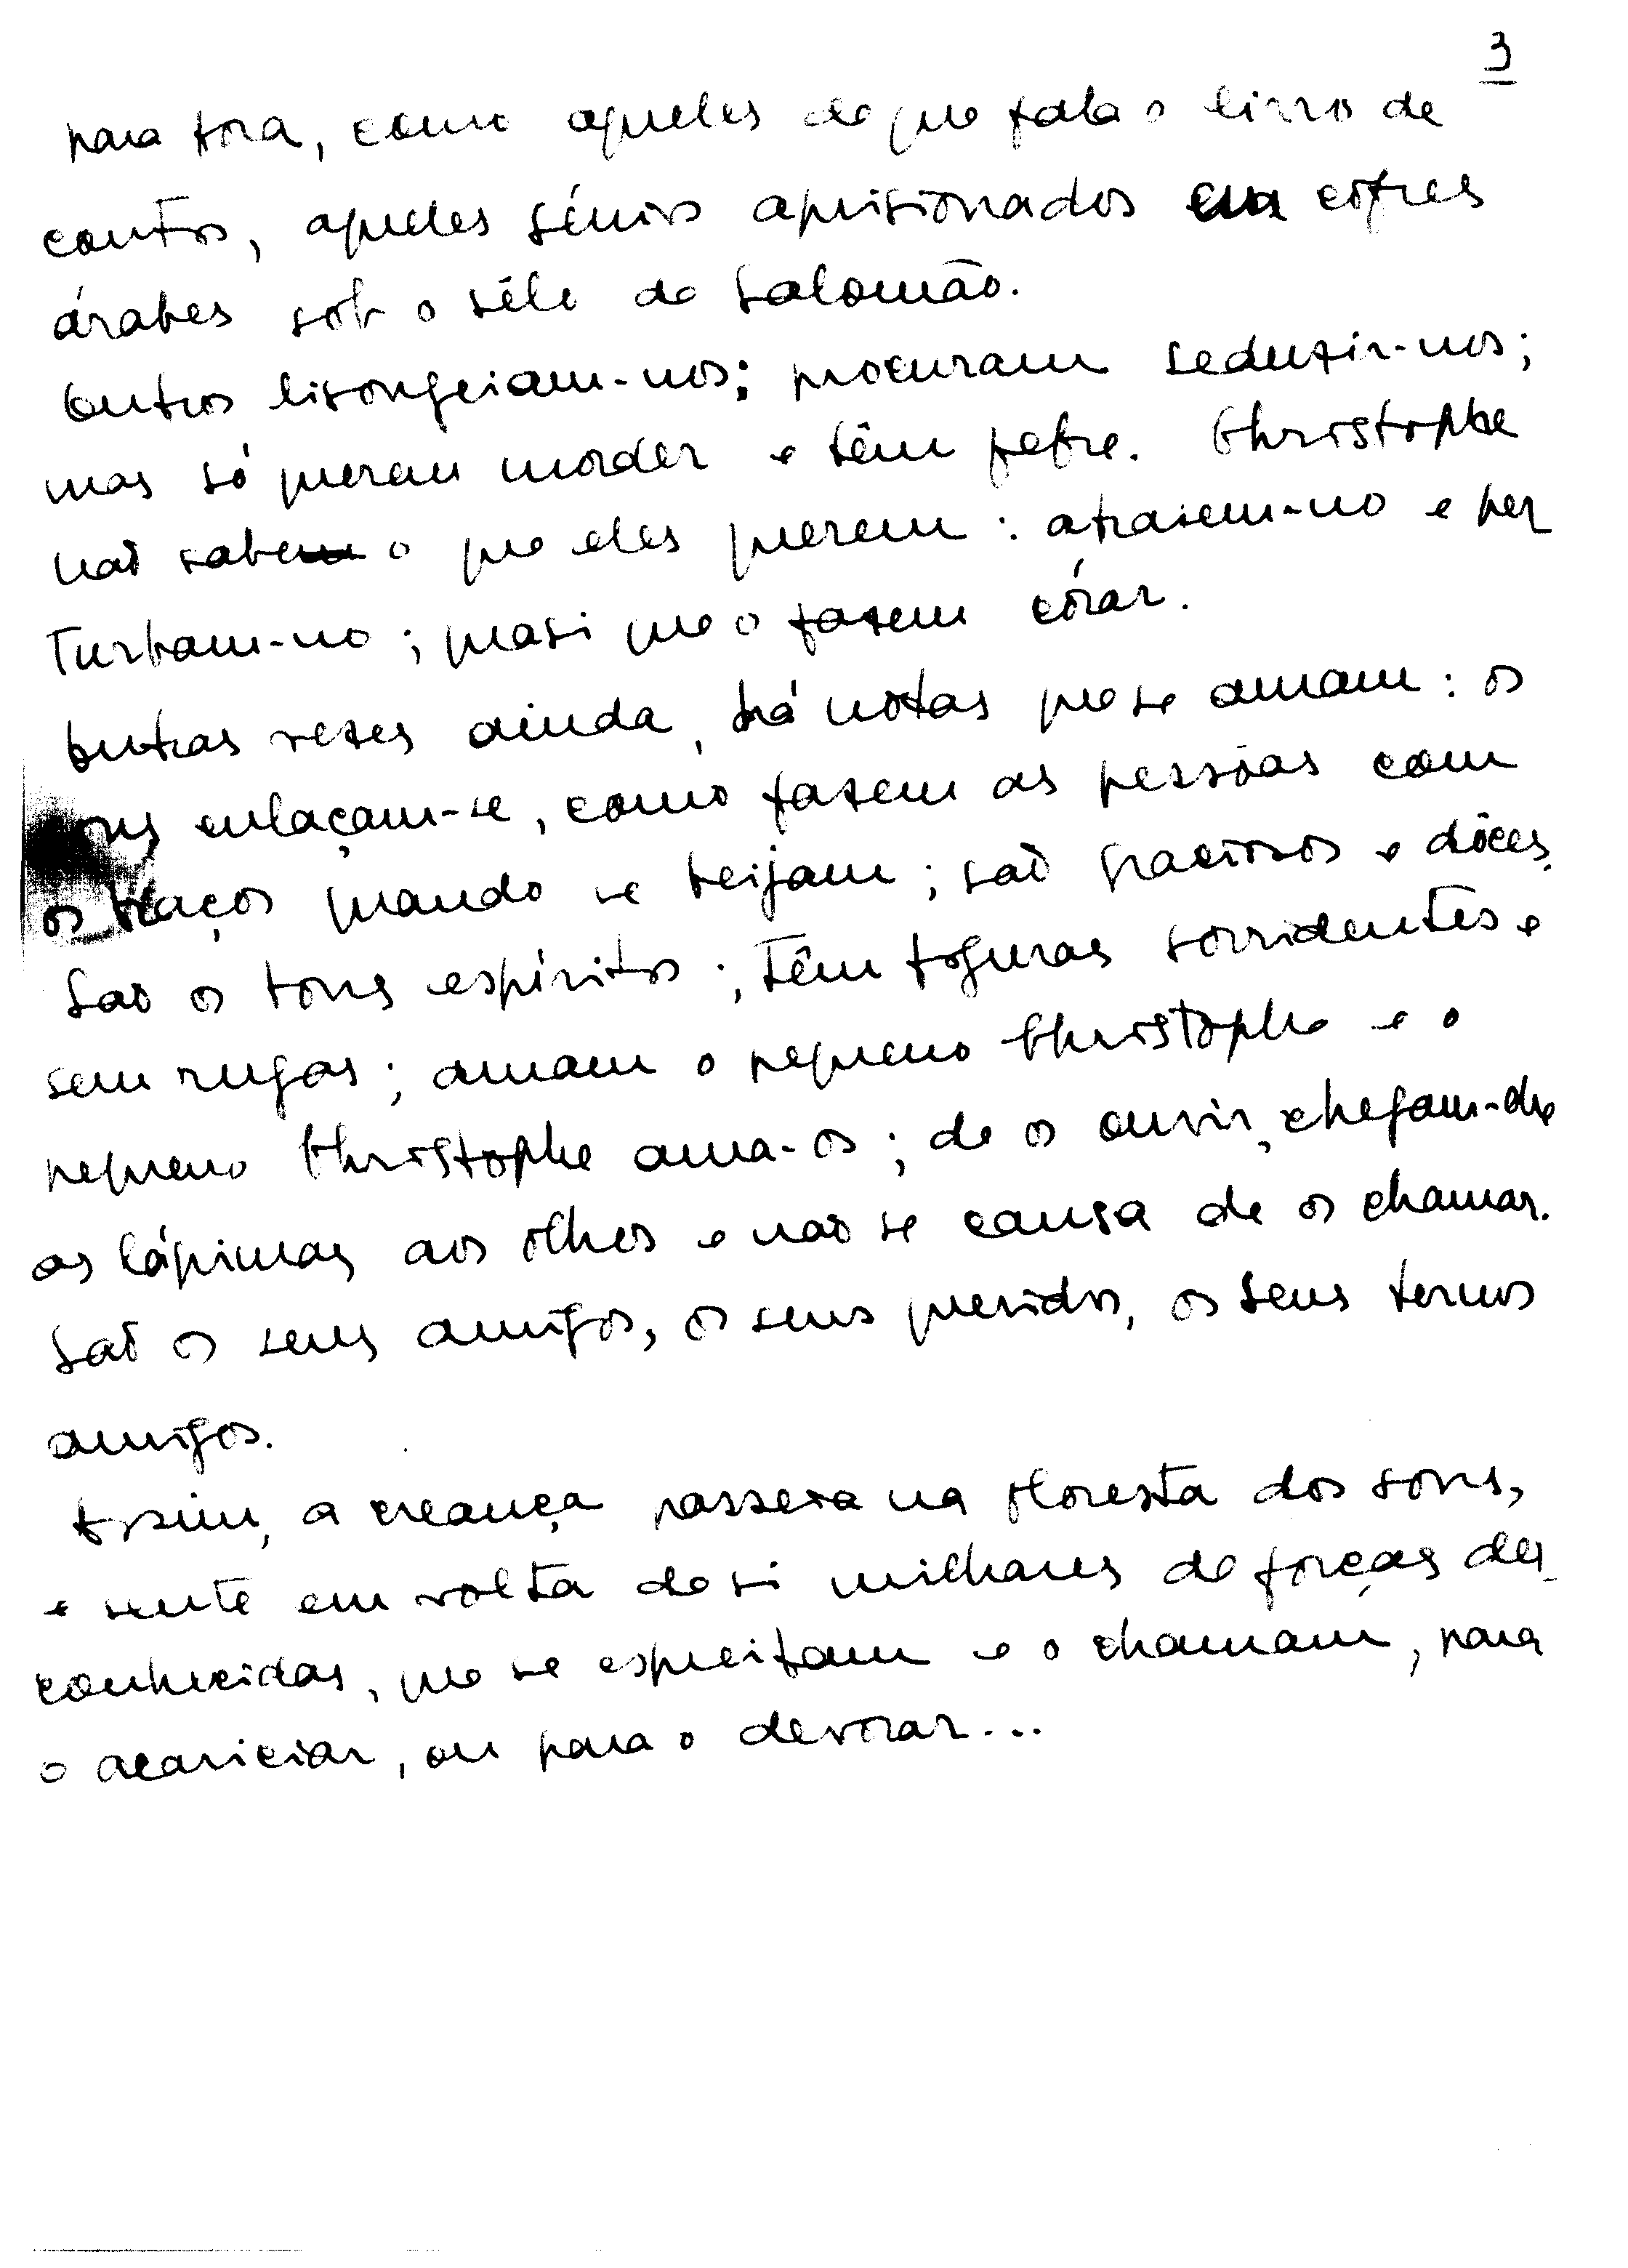 3
para fora, como aqueles de que fala o livro de
contos, aqueles génios aprisionados em cofres
árabes sob o sêlo de Salomão.
Outros lisongeiam-nos; procuram seduzir-nos;
mas só querem morder e têm febre. Christophe
não sabe o que eles querem: atraiem-no e per
turbam-no; quasi que o fazem córar.
Outras vezes ainda, há notas que se amam: os
sons enlaçam-se, como fazem as pessôas com
os braços quando se beijam; são graciosos e dôces.
São os bons espíritos; têm figuras sorridentes e
sem rugas; amam o pequeno Christophe e o
pequeno Christophe ama-os; de os ouvir, chegam-lhe
as lágrimas aos olhos e não se cansa de os chamar.
São os seus amigos, os seus queridos, os seus ternos
amigos.
Assim, a creança passeia na floresta dos sons,
e sente em volta de si milhares de forças des
conhecidas, que se espreitam e o chamam, para
o acariciar, ou para o devorar...